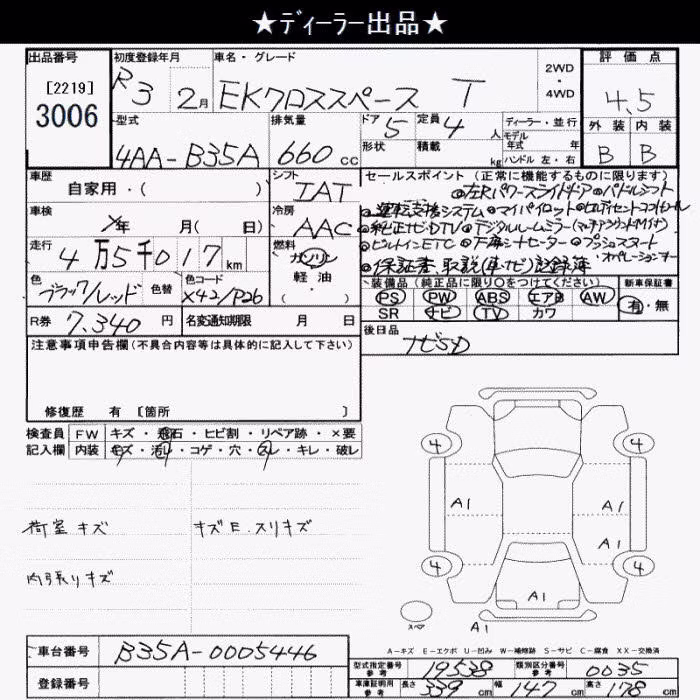 ★ディーラー出品★
出品番号 初度登録年月 車名・グレード 2WD・4WD 評価点
[2219]
3006
R3 2月 EKクロススペース T 4.5
型式 排気量 ドア 5 定員 4人 ディーラー・並行 外装 内装
4AA-B35A 660cc 形状 積載 kg モデル年式 年 B B
ハンドル 左・右
車歴 シフト セールスポイント(正常に機能するものに限ります)
自家用・( ) IAT ●左Rパワースライドドア ●パドルシフト
車検 冷房 ●運転支援システム ●マイパイロット
X年 月( 日) AAC ●純正ナビ・DTV ●デジタルルームミラー(マルチアラウンドモニター付)
走行 燃料 ●ビルトインETC ●プッシュスタート
4万5千017km ガソリン ●保証書、取説(車、ナビ)記録簿
軽・油
色 色替 色コード 装備品(純正品に限り○をつけてください) 新車保証書
ブラック/レッド X42/P26 PS PW ABS エアB AW 有・無
SR ナビ TV カワ
R券 7,340円 名変通知期限 月 日 後日品
注意事項申告欄(不具合内容等は具体的に記入して下さい)
修復歴 有 [箇所 ]
検査員 FW キズ・飛石・ヒビ割・リペア跡・×要
記入欄 内装 キズ・汚レ・コゲ・穴・スレ・キレ・破レ
荷室キズ キズE.スリキズ
内張りキズ
4 4
A1 A1
A1
4 4
A1
スペア A1
A-キズ E-エクボ U-凹み W-補修跡 S-サビ C-腐食 XX-交換済
車台番号 B35A-0005446
登録番号
型式指定番号 参考 19538 類別区分番号 参考 0035
車庫証明用 参考 長さ 339cm 幅 147cm 高さ 178cm